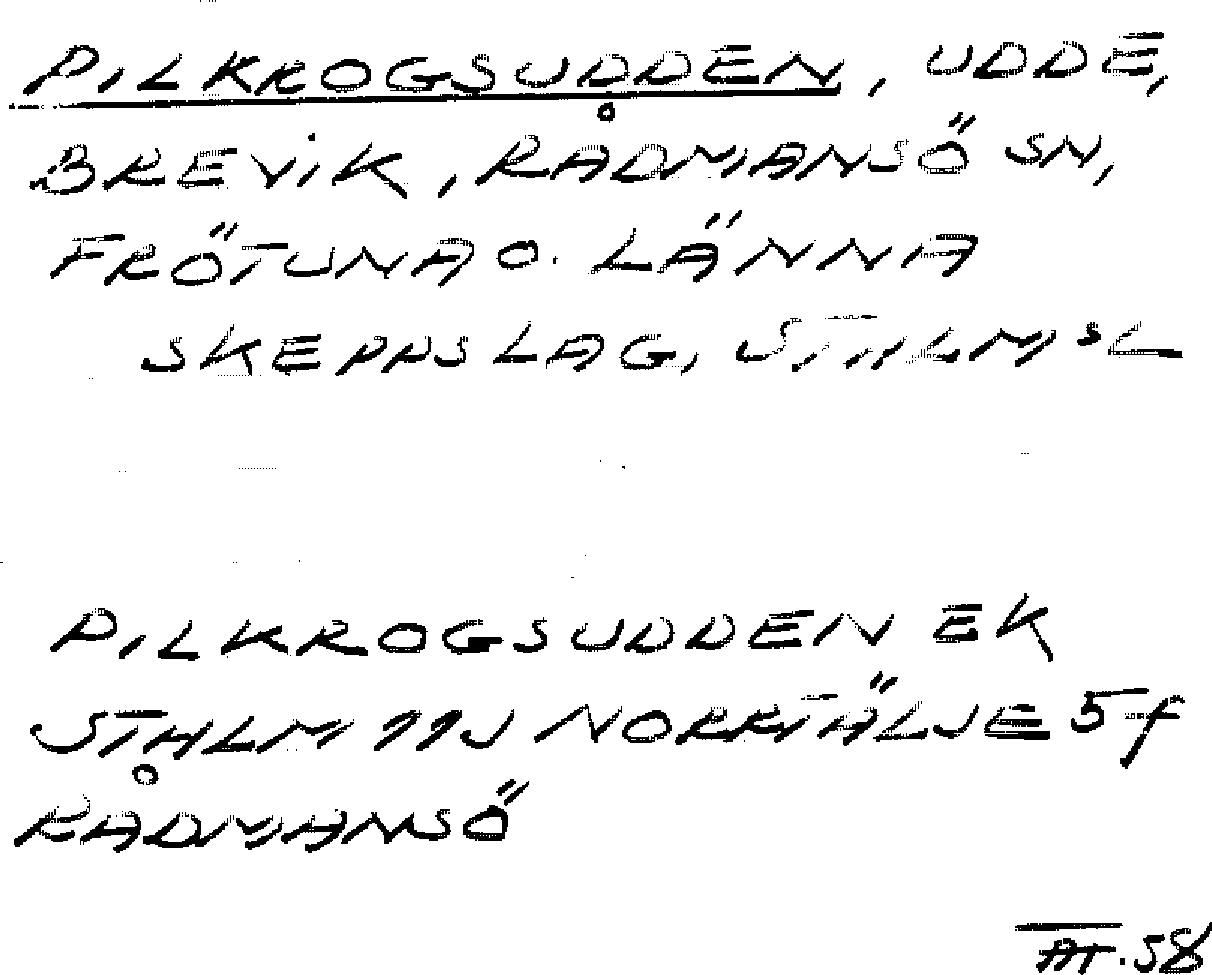 PILKROGSUDDEN, UDDE,
BREVIK, RÅDMANSÖ SN,
FRÖTUNA O. LÄNNA
SKEPPSLAG, STHLMS L
PILKROGSUDDEN EK
STHLM 11J NORRTÄLJE 5f
RÅDMANSÖ
AT. 58